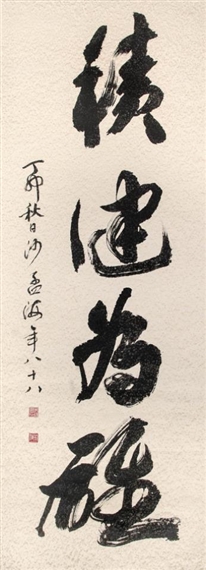 積健為雄
丁卯秋日沙孟海年八十八